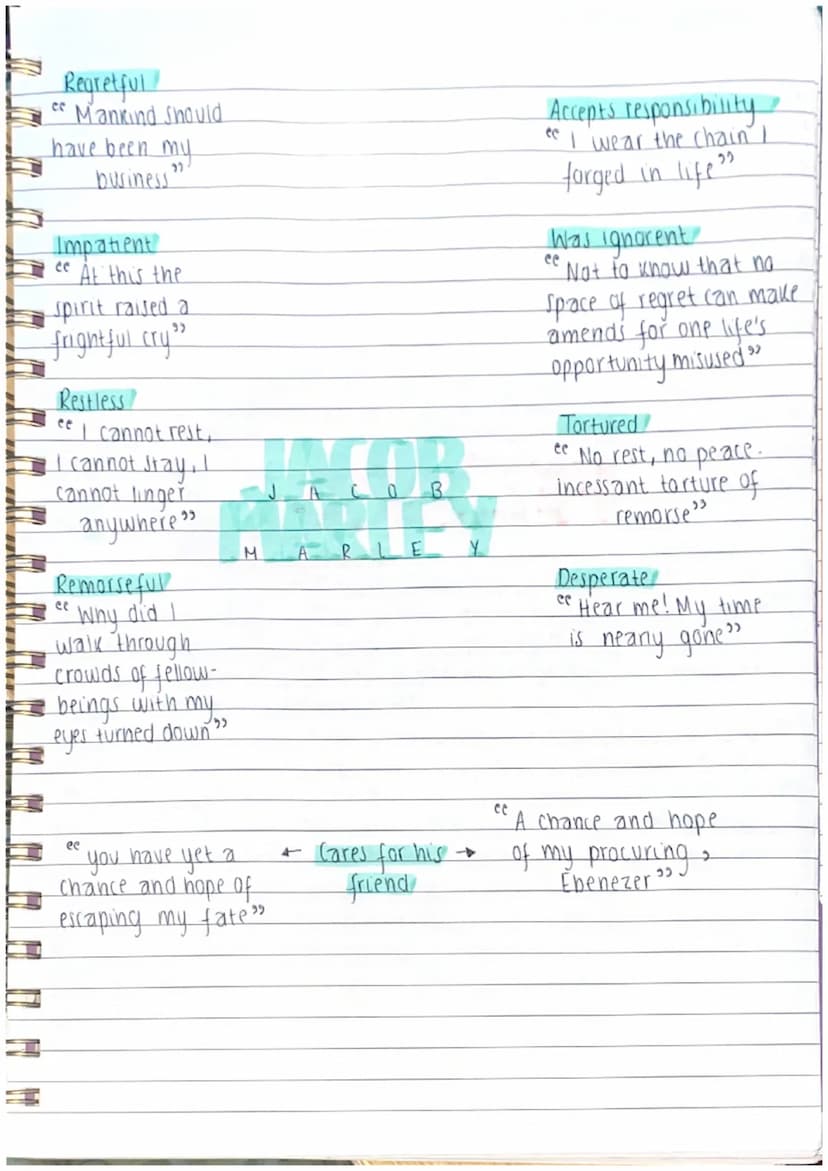 Regretful
“ Mankind should
have been my
business”
Impatient
“ At this the
spirit raised a
frightful cry”
Restless
“ I cannot rest,
I cannot stay, I
cannot linger
anywhere”
Remorseful
“ Why did I
walk through
crowds of fellow-
beings with my
eyes turned down”
JACOB
MARLEY
J A C O B
M A R L E Y
Accepts responsibility
“ I wear the chain I
forged in life”
Was ignorent
“ Not to know that no
space of regret can make
amends for one life's
opportunity misused”
Tortured
“ No rest, no peace.
incessant torture of
remorse”
Desperate
“ Hear me! My time
is nearly gone”
“ you have yet a
chance and hope of
escaping my fate”
← Cares for his →
friend
“ A chance and hope
of my procuring,
Ebenezer”